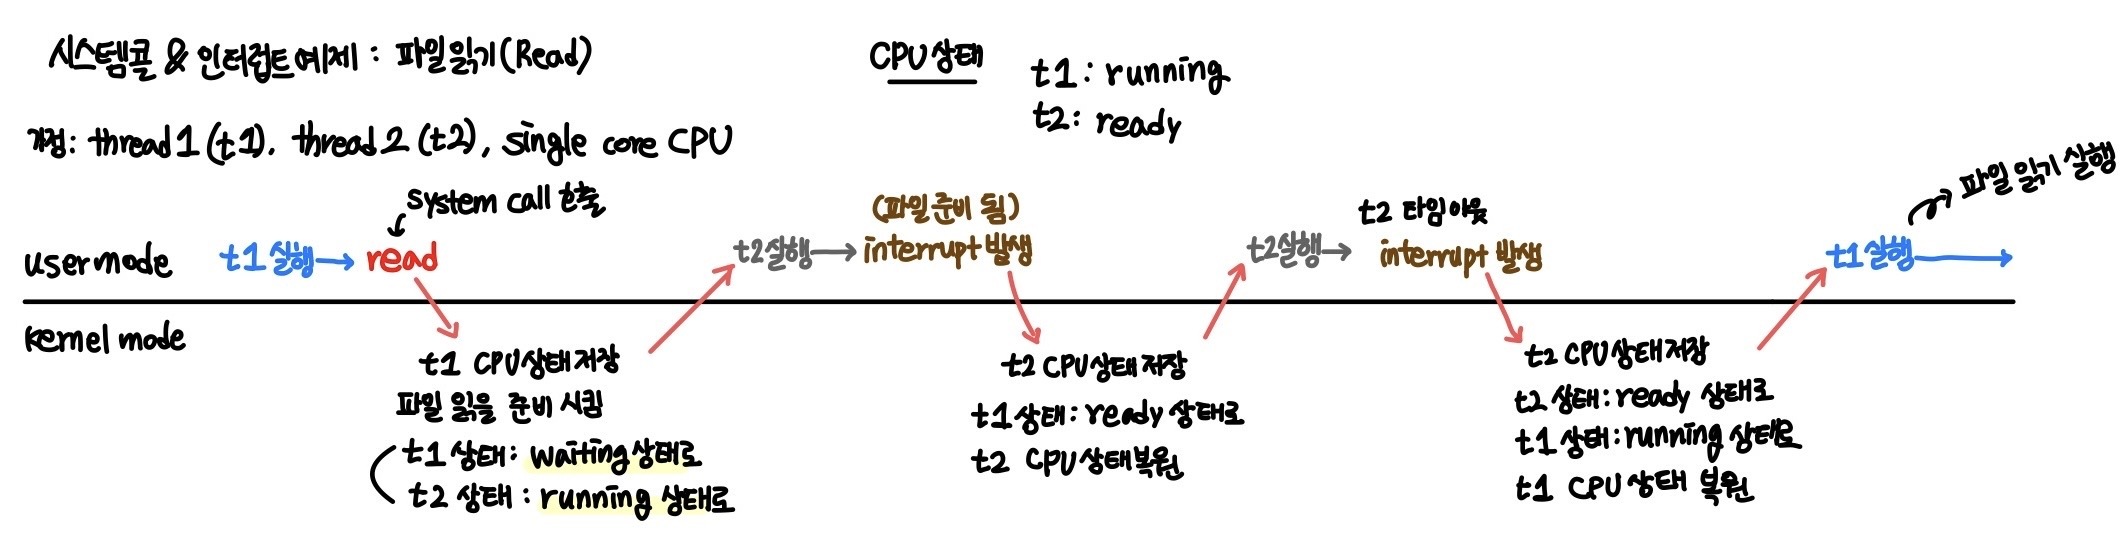 시스템콜 & 인터럽트 예제 : 파일읽기(Read)
가정: thread 1 (t1), thread 2 (t2), single core CPU
CPU 상태
t1: running
t2: ready
system call 호출
user mode
t1 실행 → read
t2실행 →
(파일 준비 됨)
interrupt 발생
t2실행 →
t2 타임아웃
interrupt 발생
t1 실행 →
파일 읽기 실행
kernel mode
t1 CPU상태 저장
파일 읽을 준비 시킴
t1 상태 : waiting 상태로
t2 상태 : running 상태로
t2 CPU상태 저장
t1 상태 : ready 상태로
t2 CPU 상태 복원
t2 CPU 상태 저장
t2 상태 : ready 상태로
t1 상태 : running 상태로
t1 CPU 상태 복원